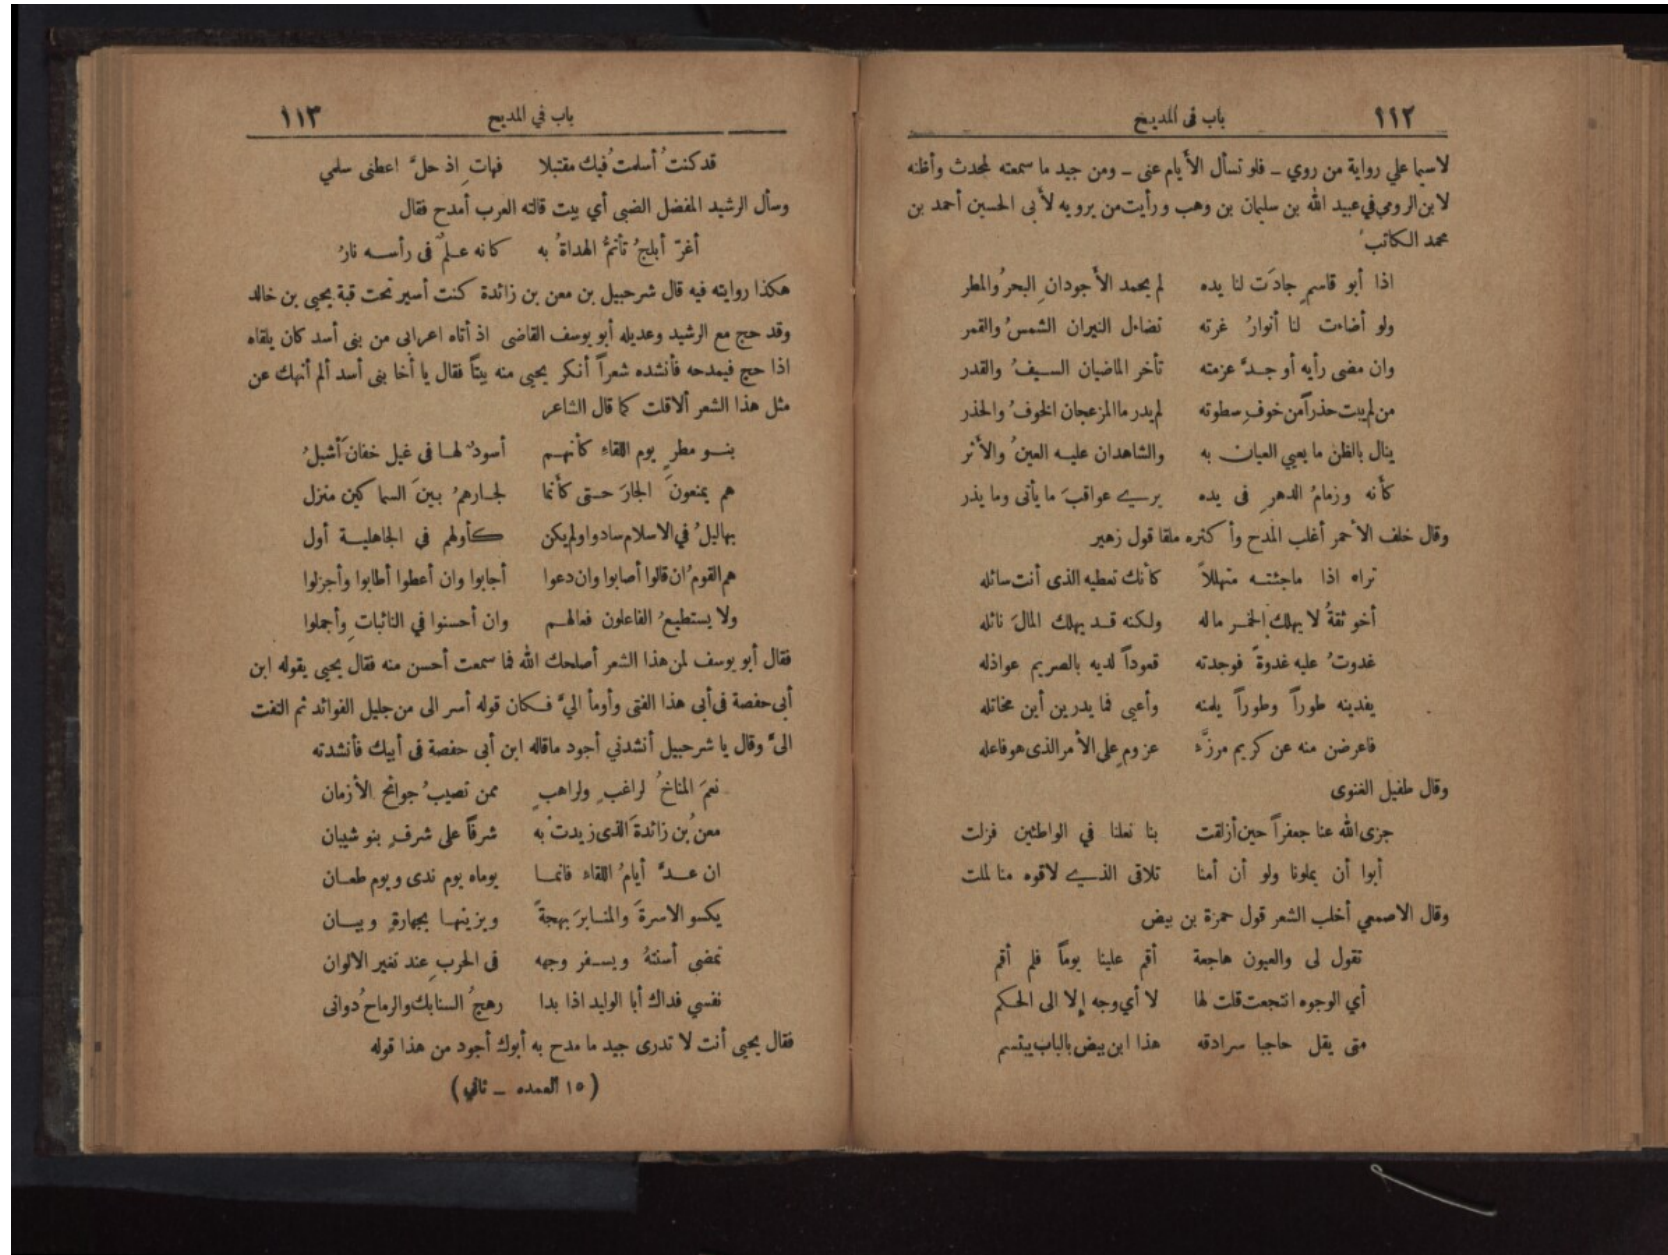 ١١٢ باب فى المديح
لاسيما علي رواية من روي ــ فلو تسأل الأيام عنى ــ ومن جيد ما سمعته لمحدث وأظنه
لابن الرومي في عبيد الله بن سليمان بن وهب ورأيت من يرويه لأبى الحسين أحمد بن
محمد الكاتب
اذا أبو قاسمٍ جادَت لنا يده لم يحمد الأجودانِ البحرُ والمطر
ولو أضاءت لنا أنوارُ غرته تضاءل النيران الشمسُ والقمر
وان مضى رأيه أو جدَّ عزمته تأخر الماضيان السيفُ والقدر
من لم يبت حذراً من خوفِ سطوته لم يدر ما المزعجان الخوفُ والحذر
ينال بالظن ما يعيي العيان به والشاهدان عليه العينُ والأثر
كأنه وزمامُ الدهرِ فى يده يرى عواقبَ ما يأتى وما يذر
وقال خلف الأحمر أغلب المدح وأكثره ملقا قول زهير
تراه اذا ماجئته متهللاً كأنك تعطيه الذى أنت سائله
أخو ثقةٌ لا يهلك الخمر ماله ولكنه قد يهلك المالَ نائله
غدوتُ عليه غدوةً فوجدته قعوداً لديه بالصريم عواذله
يفدينه طوراً وطوراً يلمنه وأعيى فما يدرين أين مخاتله
فاعرضن منه عن كريم مرزَّء عزومٍ على الأمر الذى هو فاعله
وقال طفيل الغنوى
جزى الله عنا جعفراً حين أزلقت بنا نعلنا في الواطئين فزلت
أبوا أن يملونا ولو أن أمنا تلاقى الذي لاقوه منا لملت
وقال الاصمعي أخلب الشعر قول حمزة بن بيض
تقول لى والعيون هاجعة أقم علينا يوماً فلم أقم
أي الوجوه انتجعت قلت لها لا أي وجه إلا الى الحكم
متى يقل حاجبا سرادقه هذا ابن بيض بالباب يبتسم
باب في المديح ١١٣
قد كنتُ أسلمتُ فيك مقتبلا فهاتِ اذ حلَّ اعطنى سلمي
وسأل الرشيد المفضل الضبى أي بيت قالته العرب أمدح فقال
أغرّ أبلجُ تأتمُّ الهداةُ به كانه علمٌ فى رأسه نارُ
هكذا روايته فيه قال شرحبيل بن معن بن زائدة كنت أسير تحت قبة يحيى بن خالد
وقد حج مع الرشيد وعديله أبو يوسف القاضى اذ أتاه اعرابى من بنى أسد كان يلقاه
اذا حج فيمدحه فأنشده شعراً أنكر يحيى منه بيتاً فقال يا أخا بنى أسد ألم أنهك عن
مثل هذا الشعر ألاقلت كما قال الشاعر
بنو مطرٍ يوم اللقاء كأنهم أسودٌ لها فى غيل خفانَ أشبلُ
هم يمنعونَ الجارَ حتى كأنما لجارهمُ بينَ السماكين منزل
بهاليلُ في الاسلام سادوا ولم يكن كأولهم في الجاهلية أول
هم القومُ ان قالوا أصابوا وان دعوا أجابوا وان أعطوا أطابوا وأجزلوا
ولا يستطيعُ الفاعلون فعالهم وان أحسنوا في النائباتِ وأجملوا
فقال أبو يوسف لمن هذا الشعر أصلحك الله فما سمعت أحسن منه فقال يحيى يقوله ابن
أبى حفصة فى أبى هذا الفتى وأومأ اليَّ فكان قوله أسر الى من جليل الفوائد ثم التفت
الىَّ وقال يا شرحبيل أنشدني أجود ماقاله ابن أبى حفصة فى أبيك فأنشدته
نعمَ المناخُ لراغبٍ ولراهبٍ ممن تصيبُ جوائح الأزمان
معن بُن زائدةَ الذى زيدتْ به شرفاً على شرفٍ بنو شيبان
ان عدَّ أيامُ اللقاء فانما يوماه يوم ندى ويوم طعان
يكسو الاسرةَ والمنابرَ بهجةً ويزينها بجهارةٍ وبيان
تمضى أسنتهُ ويسفر وجهه فى الحربِ عند تغير الالوان
نفسي فداك أبا الوليد اذا بدا رهجُ السنابك والرماحُ دوانى
فقال يحيى أنت لا تدرى جيد ما مدح به أبوك أجود من هذا قوله
(١٥ العمده ــ ثاني)